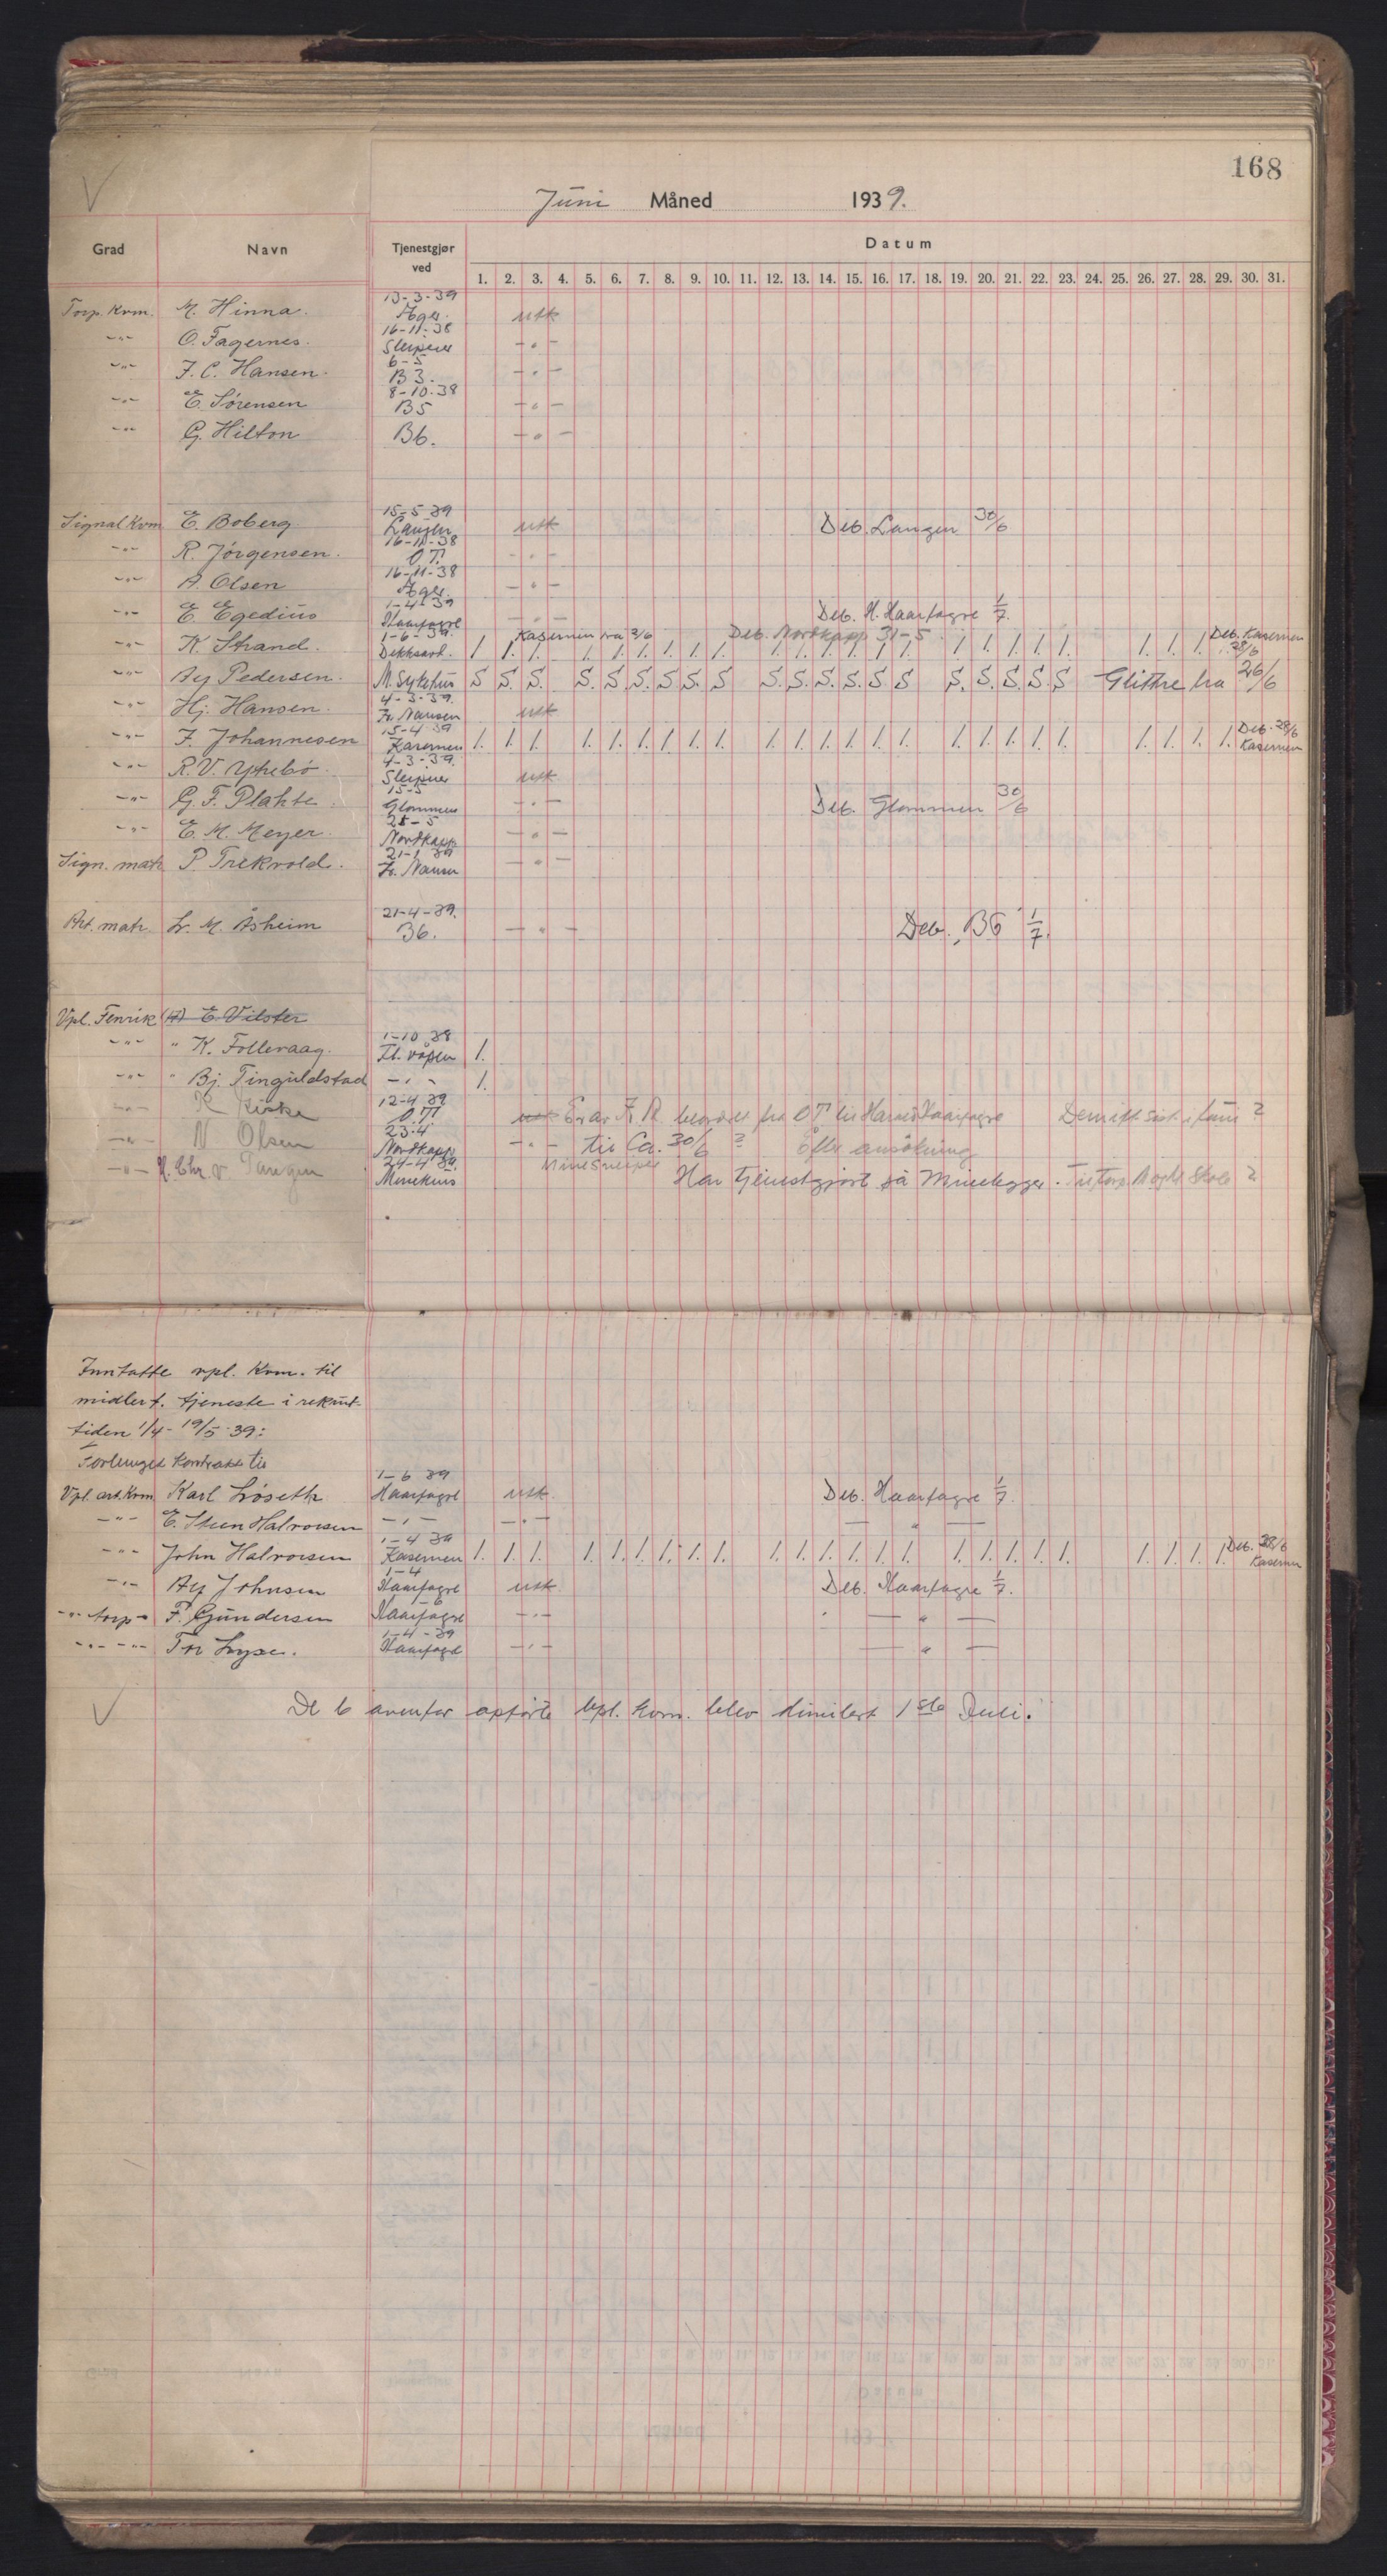 168
Juni Måned 1939.
Grad Navn Tjenestgjør ved Datum
1. 2. 3. 4. 5. 6. 7. 8. 9. 10. 11. 12. 13. 14. 15. 16. 17. 18. 19. 20. 21. 22. 23. 24. 25. 26. 27. 28. 29. 30. 31.
13-3-39
Torp. Kvm. M. Hinna. Æger. utk
16-11-38
-"- O. Fagernes. Sleipner -"-
6-5
-"- F. C. Hansen. B3. -"-
8-10-38
-"- E. Sørensen B5 -"-
-"- G. Hilton B6. -"-
15-5-39
Signal Kvm E. Boberg Laugen utk Deb. Laugen 30/6
16-11-38
-"- R. Jørgensen. O.T. -"-
16-11-38
-"- A. Olsen Æger. -"-
1-4-39
-"- E. Egedius Haarfagre -"- Deb. H. Haarfagre 1/7.
1-6-39. Kasernen fra 3/6 Deb. Nordkapp 31-5 Deb. Kasernen
-"- K. Strand. Dekksarb. 1 1. 1. 1. 1. 1. 1. 1. 1. 1. 1. 1. 1. 1. 1. 1. 1. 1. 1. 1. 1. 1. 1. 28/6
-"- Alf Pedersen. M. Sykehus S S. S. S. S. S. S. S. S S. S. S. S. S S S. S. S. S. S Glittre fra 26/6
4-3-39.
-"- Hj. Hansen. Fr. Nansen utk
15-4 39 Deb. 28/6
-"- F. Johannesen Kasernen 1. 1. 1 1. 1. 1. 1. 1. 1. 1. 1. 1. 1. 1. 1. 1. 1. 1. 1. 1. 1. 1. 1. 1. 1. Kasernen
4-3-39.
-"- R. V. Ytrebö. Sleipner utk
15-5
-"- G. F. Plahte. Glommen -"- Deb. Glommen 30/6
25-5
-"- E. M. Meyer. Nordkapp -"-
21-1 39
Sign. matr. P Trekvold. Fr. Nansen -"-
21-4-39.
Art. matr. L. M. Åsheim B6. -"- Deb. B6 1/7.
Vpl. Fenrik E. Vilster
1-10 38
-"- " K. Folleraag. Til. våpen 1.
-"- " Bj. Tinguldstad -"- 1.
12-4 39
-"- O.T. Er av F. R. beordret fra OT til Harald Haarfagre Demitt sist i juni ?
23-4
-"- N Olsen Nordkapp -"- til Ca. 30/6 ? Efter ansökning
24-4 39. Minesveiper
-"- H. Chr. v Minekurs Har tjenestgjort på Minelegger.
Inntatte vpl. Kvm. til
midlert. tjeneste i rekrut-
tiden 1/4 - 19/5-39:
Forlenget Kontrakt til
1-6 39
Vpl. art. Kvm Karl Løseth Haarfagre utk. Deb. Haarfagre 1/7.
-"- E. Steen Halvorsen -"- -"- — " —
1-4 39 Deb. 28/6
-"- John Halvorsen Kasernen 1. 1. 1. 1. 1. 1. 1. 1. 1. 1. 1. 1. 1. 1. 1. 1. 1. 1. 1. 1. 1. 1. 1. 1. 1. Kasernen
1-4
-"- Alf Johnsen Haarfagre utk Deb. Haarfagre 1/7.
-"- torp- F. Gundersen Haarfagre -"- — " —
1-4-39
-"- -"- Tor Lyse. Haarfagre -"- — " —
De 6 ovenfor opførte vpl. kvm. blev dimitert 1ste Juli.